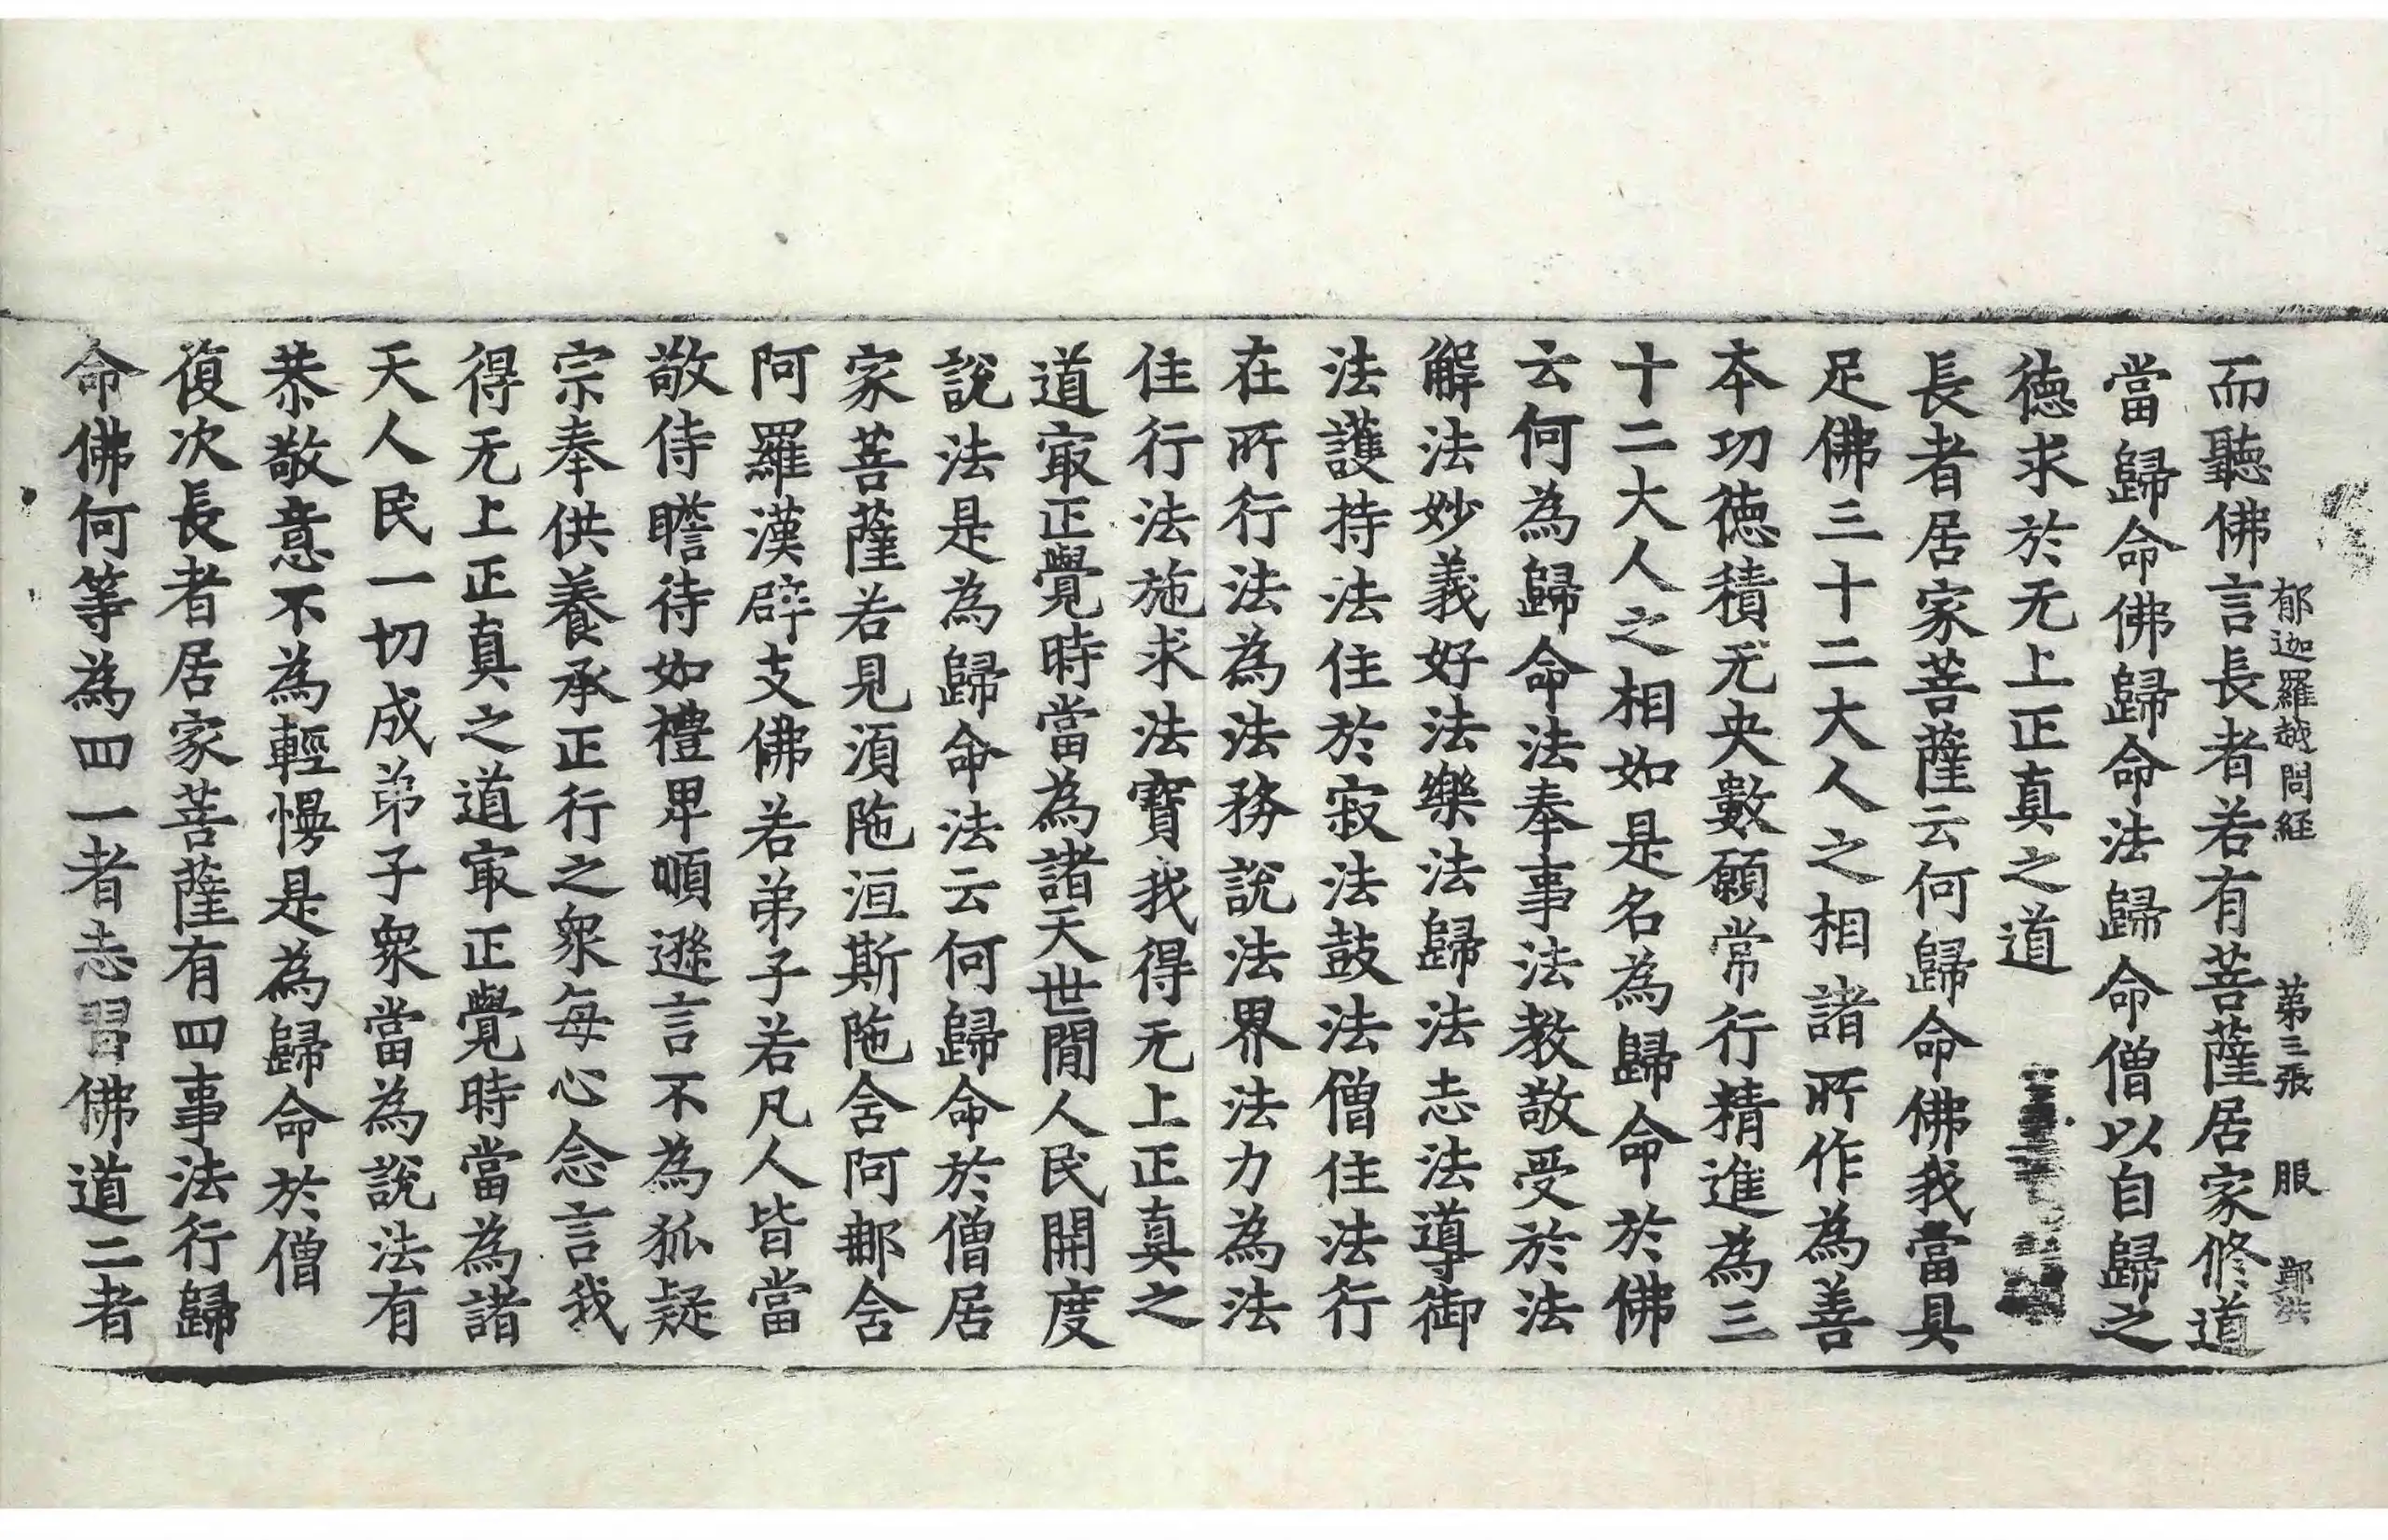 郁迦羅越問経 第三張 服 鄭洪
而聽佛言長者若有菩薩居家修道
當歸命佛歸命法歸命僧以自歸之
德求於无上正真之道
長者居家菩薩云何歸命佛我當具
足佛三十二大人之相諸所作為善
本功德積无央數願常行精進為三
十二大人之相如是名為歸命於佛
云何為歸命法奉事法教敬受於法
解法妙義好法樂法歸法志法導御
法護持法住於寂法鼓法僧住法行
在所行法為法務說法界法力為法
住行法施求法寶我得无上正真之
道㝡正覺時當為諸天世閒人民開度
說法是為歸命法云何歸命於僧居
家菩薩若見須陁洹斯陁含阿那含
阿羅漢辟支佛若弟子若凡人皆當
敬侍瞻待如禮卑順遜言不為狐疑
宗奉供養承正行之衆每心念言我
得无上正真之道㝡正覺時當為諸
天人民一切成弟子衆當為說法有
恭敬意不為輕慢是為歸命於僧
復次長者居家菩薩有四事法行歸
命佛何等為四一者志習佛道二者